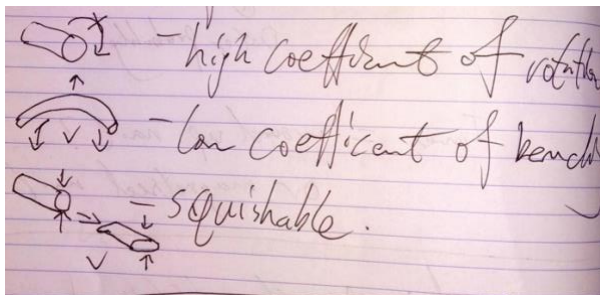 - high coefficient of rotation
- low coefficient of bendi
- squishable.